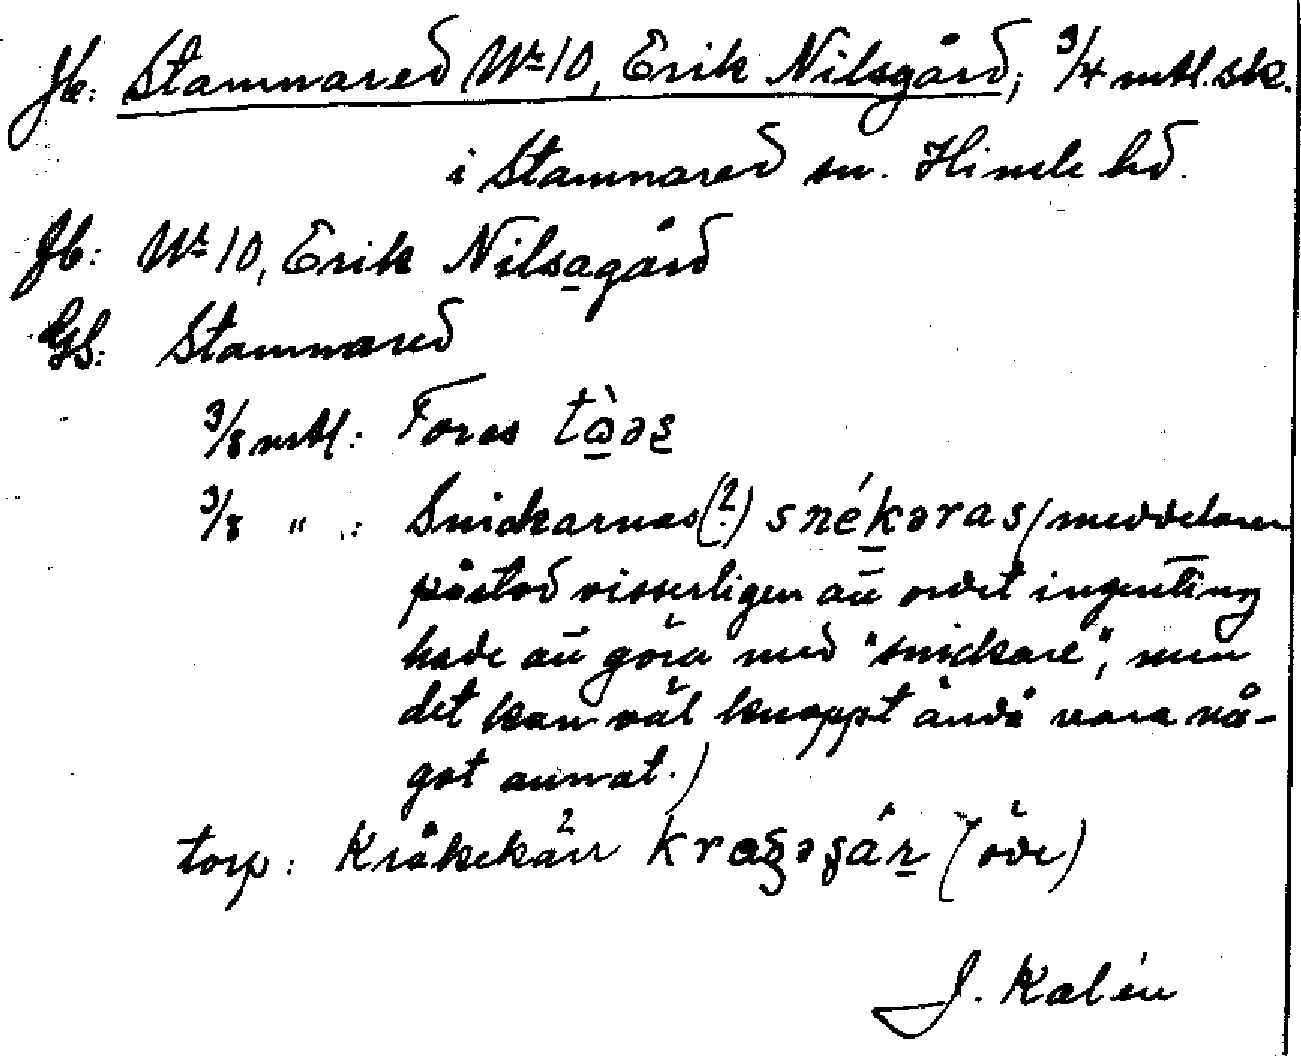 Jb: Stamnared Nr 10, Erik Nilsgård; 3/4 mtl. sk.
i Stamnared sn. Himle hd.
Jb: Nr 10, Erik Nilsagård
GS: Stamnared
3/8 mtl: Toras
3/8 " : Snickarnas(?) snékəras (meddelaren
påstod visserligen att ordet ingenting
hade att göra med "snickare", men
det kan väl knappt ändå vara nå-
got annat.)
torp: Kråkekärr (öde)
J. Kalén